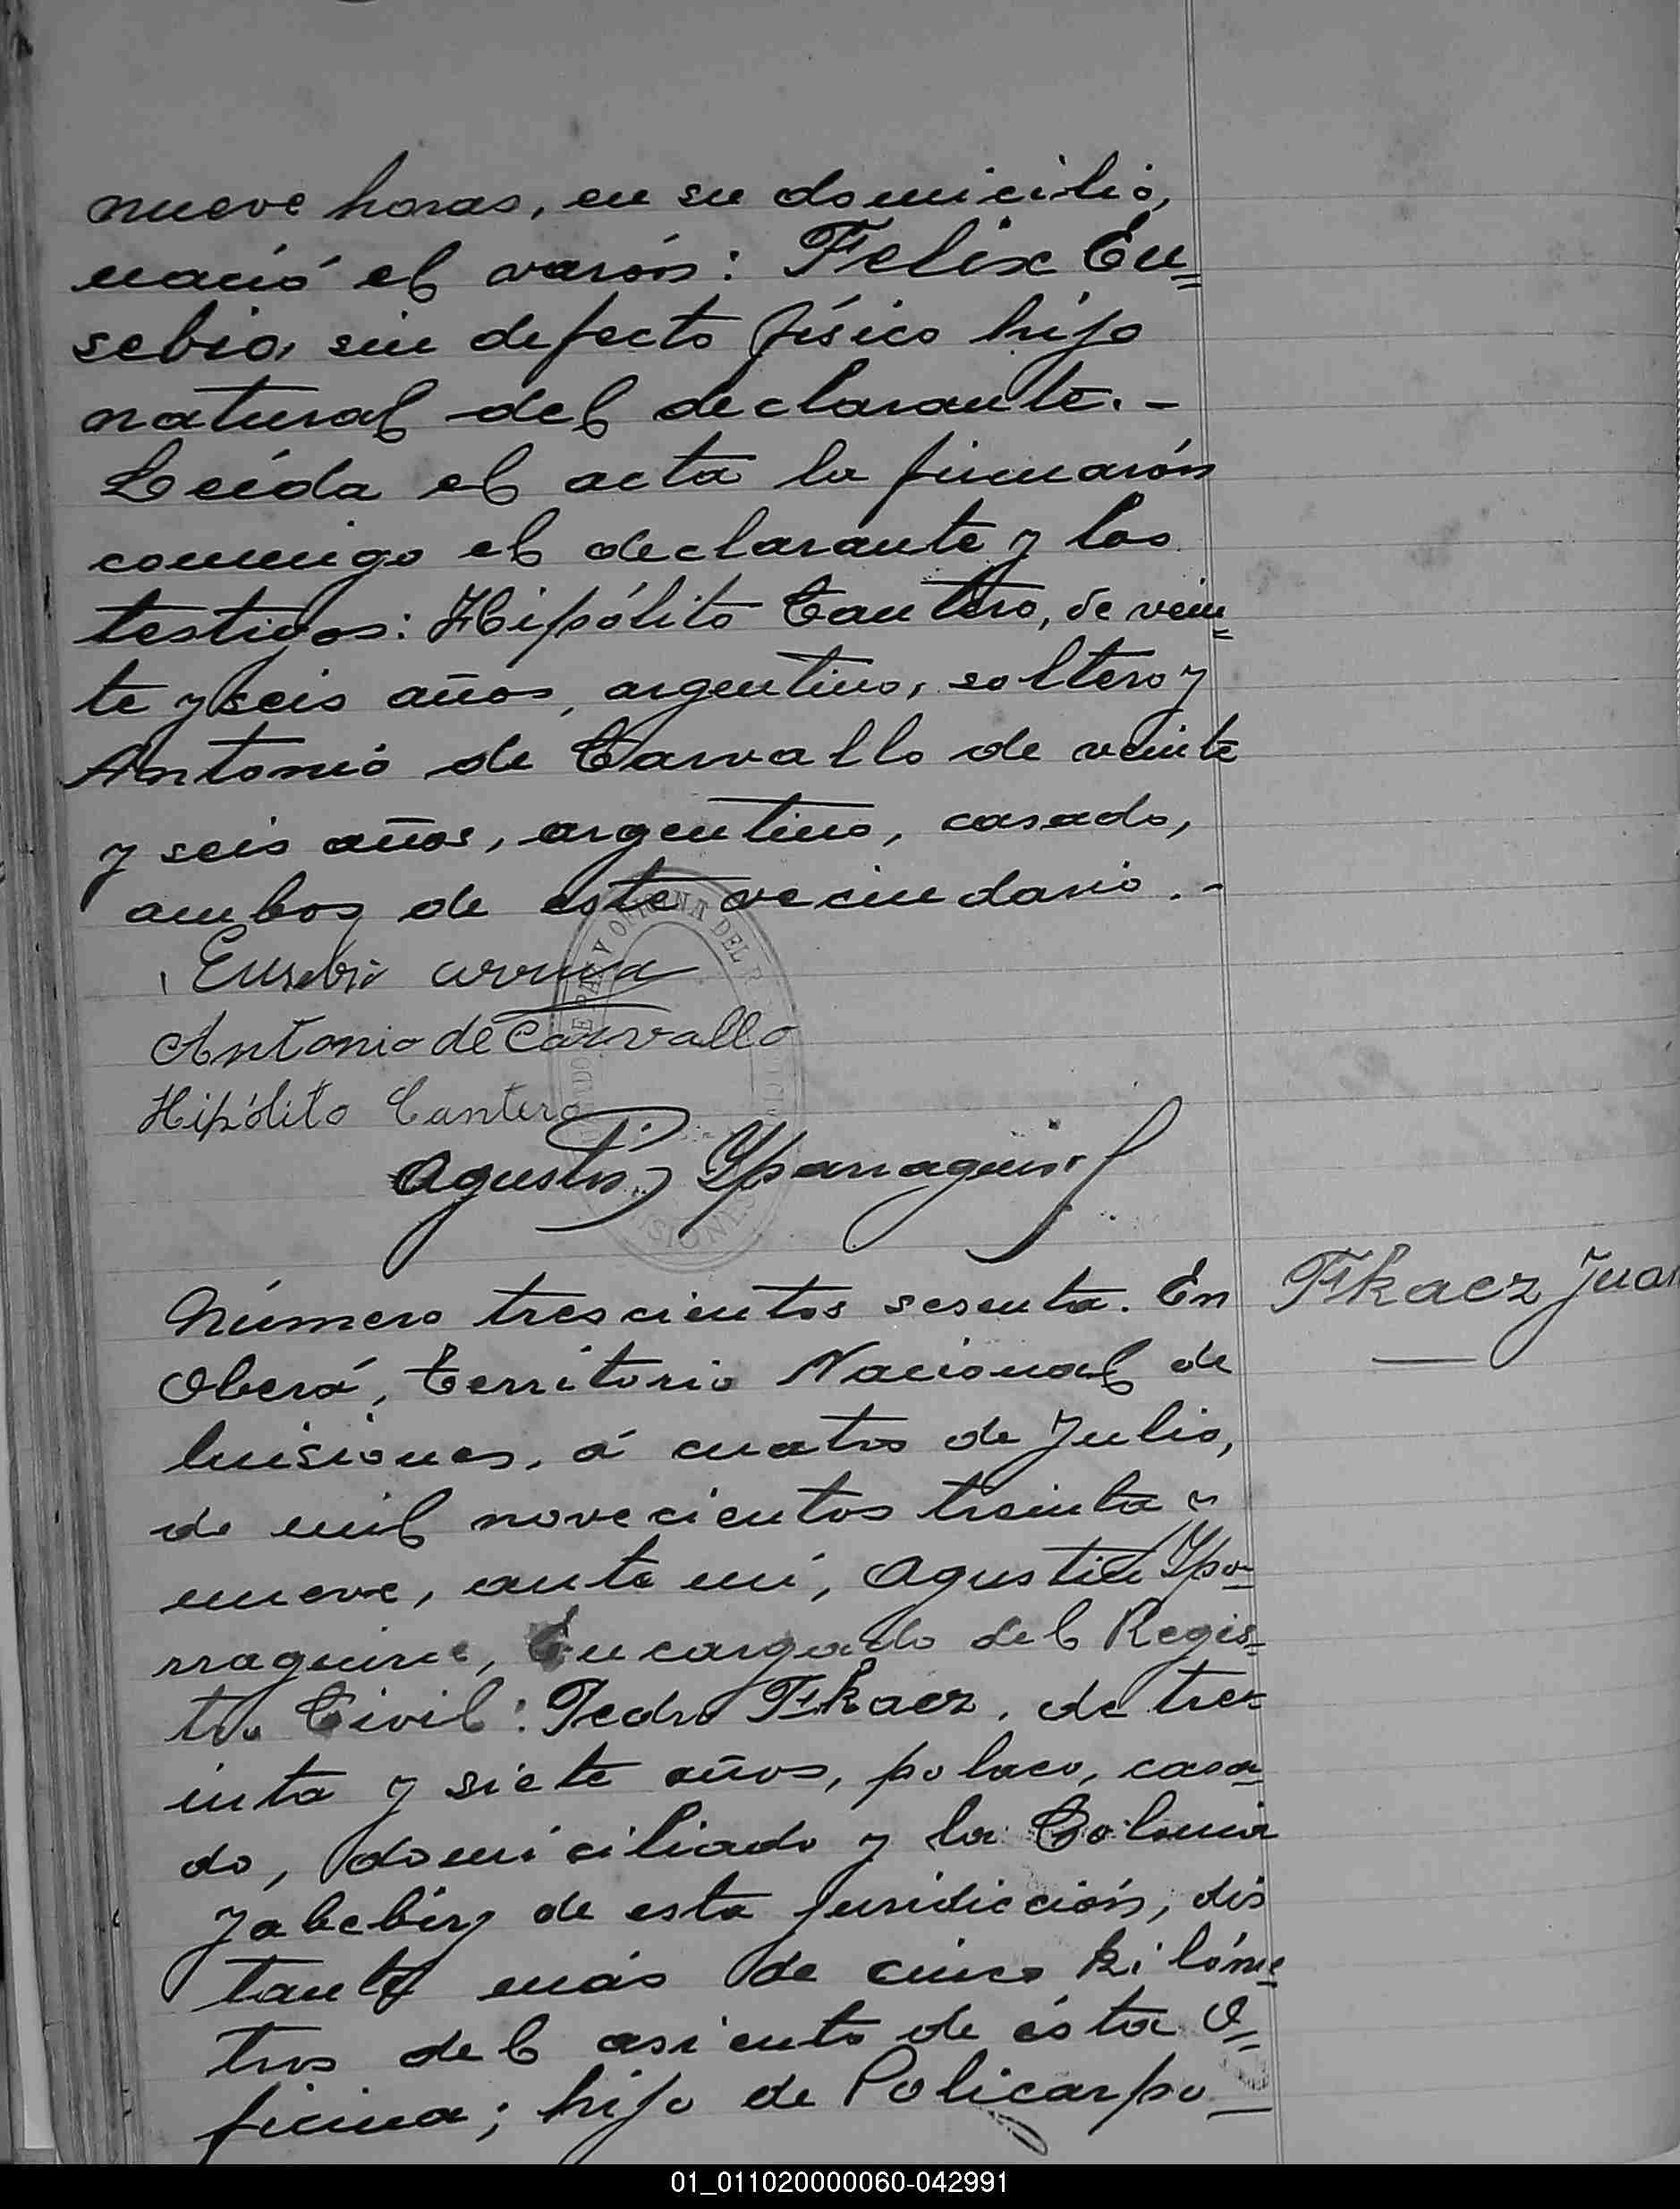 nueve horas, en su domicilio,
nació el varón: Felix Eu=
sebio, sin defecto físico hijo
natural del declarante.-
Leída el acta la firmarón
conmigo el declarante y los
testigos: Hipólito Cantero, de vein=
te y seis años, argentino, soltero y
Antonio de Carvallo de veinte
y seis años, argentino, casado,
ambos de este vecindario.-
Eusebio
Antonio de Carvallo
Hipólito Cantero
Agustin Yparraguirre
Número trescientos sesenta. En
Oberá, Territorio Nacional de
Misiones, á cuatro de Julio,
de mil novecientos treinta y
nueve, ante mí, Agustin Ypa=
rraguirre, Encargado del Regis=
tro Civil: Pedro Fkacz, de tre=
inta y siete años, polaco, casa=
do, domiciliado y la Colonia
Yabebiry de esta juridicción, dis
tante más de cinco kilóme=
tros del asiento de ésta O=
ficina; hijo de Policarpo
Fkacz Juan
MISIONES
01_011020000060-042991